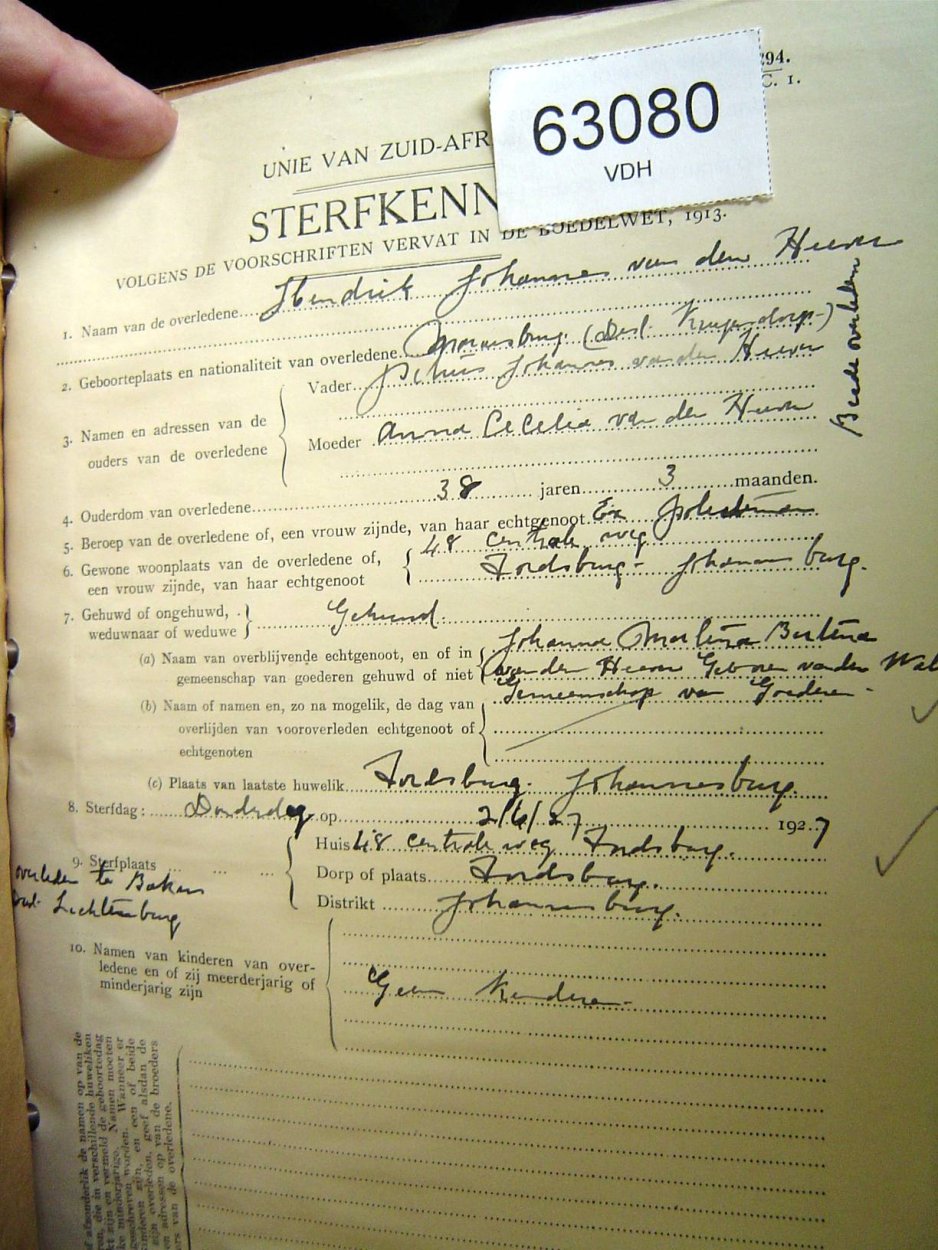 294.
C. 1.
63080
VDH
UNIE VAN ZUID-AFR
STERFKENN
VOLGENS DE VOORSCHRIFTEN VERVAT IN DE BOEDELWET, 1913.
1. Naam van de overledene Hendrik Johannes van den Heever
2. Geboorteplaats en nationaliteit van overledene (Dist. Krugersdorp)
3. Namen en adressen van de ouders van de overledene
Vader Petrus Johannes van den Heever
Moeder Anna Cecelia van den Heever
Beide overleden
4. Ouderdom van overledene 38 jaren 3 maanden.
5. Beroep van de overledene of, een vrouw zijnde, van haar echtgenoot Ex
6. Gewone woonplaats van de overledene of, 48 centrale weg
een vrouw zijnde, van haar echtgenoot Fordsburg - Johannesburg.
7. Gehuwd of ongehuwd, weduwnaar of weduwe Gehuwd.
(a) Naam van overblijvende echtgenoot, en of in Johanna Martina Bertina
gemeenschap van goederen gehuwd of niet van den Heever Geboren van der Wal
Gemeenschap van Goederen -
(b) Naam of namen en, zo na mogelik, de dag van
overlijden van vooroverleden echtgenoot of
echtgenoten
(c) Plaats van laatste huwelik Fordsburg Johannesburg
8. Sterfdag: Donderdag op 2/6/27 1927
9. Sterfplaats
Huis 48 centrale weg Fordsburg.
Dorp of plaats Fordsburg.
Distrikt Johannesburg.
overleden te Bakers
dist. Lichtenburg
10. Namen van kinderen van overledene en of zij meerderjarig of minderjarig zijn
Geen Kinderen -